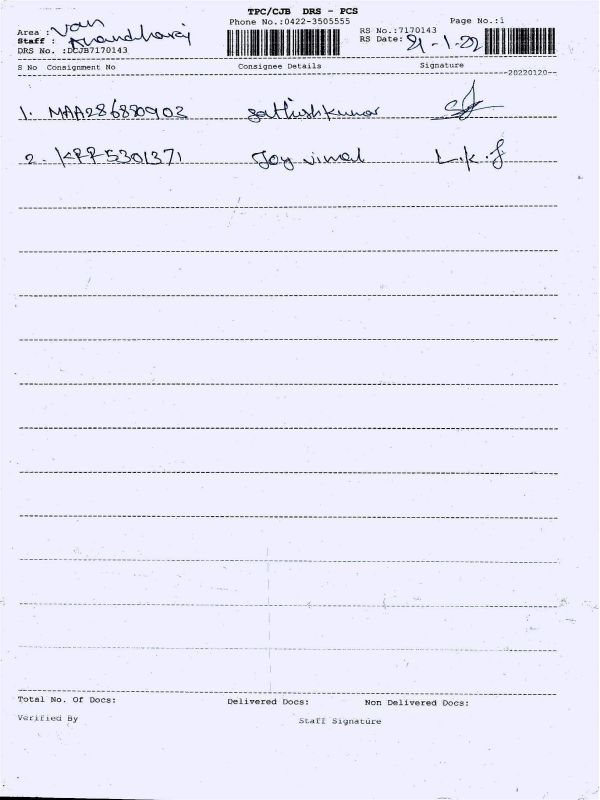 TPC/CJB DRS - PCS
Phone No.:0422-3505555
Page No.:1
Area : Van
Staff :
DRS No. :DCJB7170143
RS No.:7170143
RS Date: 21-1-22
S No Consignment No Consignee Details Signature
20220120
1. MAA286880902 Sathishkumar
2. KRR5301371 Joy vimal L.K.J
Total No. Of Docs: Delivered Docs: Non Delivered Docs:
Verified By Staff Signature